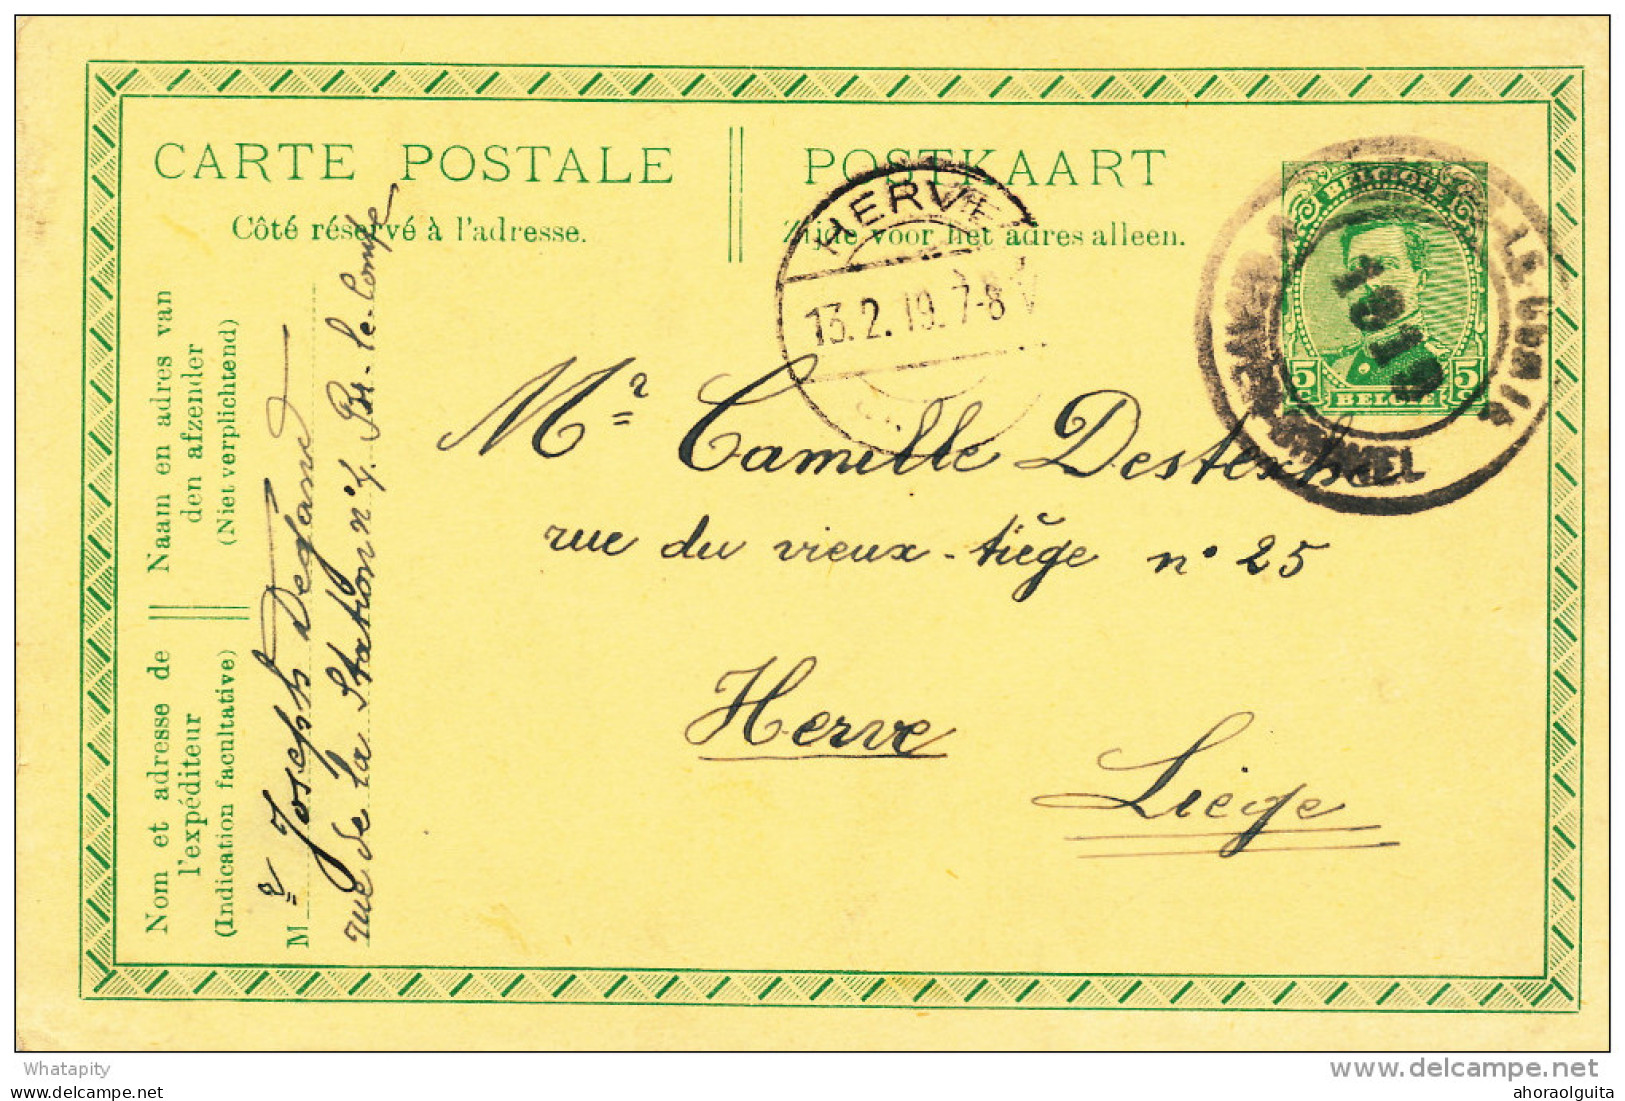 CARTE POSTALE
Côté réservé à l'adresse.
POSTKAART
Zijde voor het adres alleen.
HERVE
13.2.19. 7-8 V
BELGIQUE
5 c. 5 c.
BELGIE
1919
Naam en adres van
den afzender
(Niet verplichtend)
Nom et adresse de
l'expéditeur
(Indication facultative)
M r Joseph Degand
rue de la Station n°
Mr Camille Destexhe
rue du vieux-tiège n° 25
Herve
Liège
Whatapity
www.delcampe.net
ahoraolguita